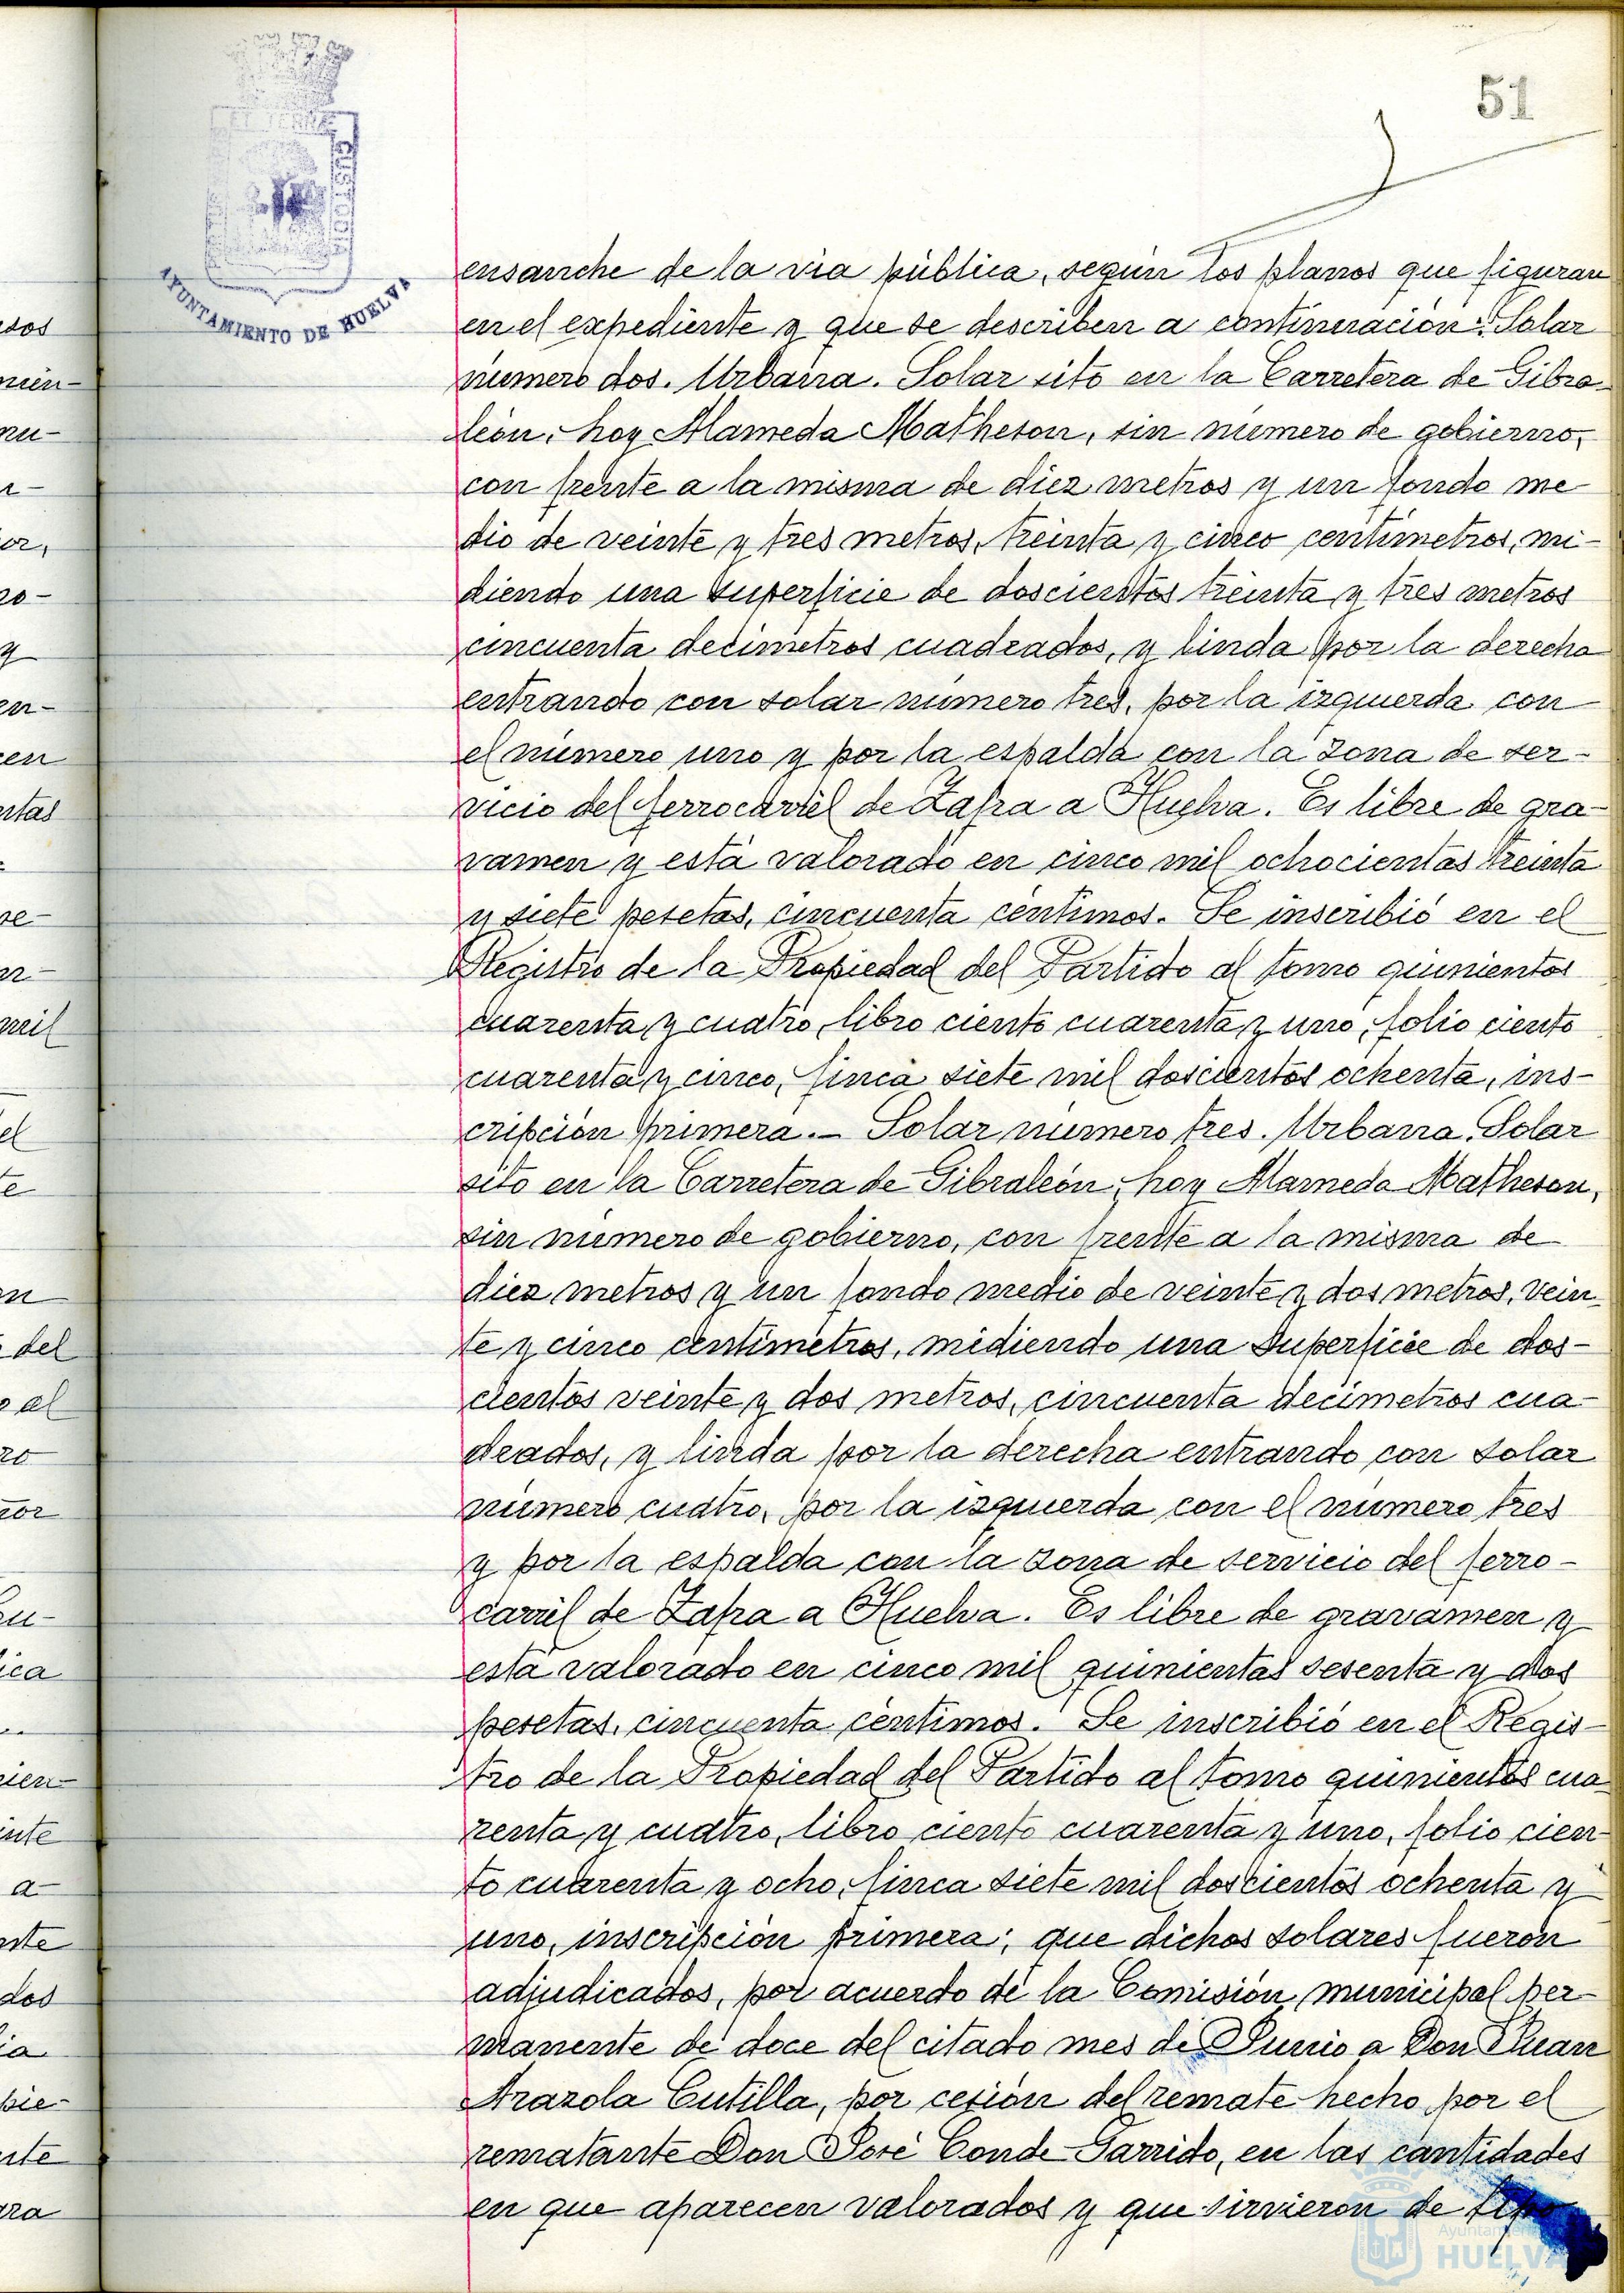 51
PORTUS MARIS ET TERRÆ CUSTODIA
AYUNTAMIENTO DE HUELVA
ensanche de la via pública, según los planos que figuran
en el expediente y que se describen a continuación: Solar
número dos. Urbana. Solar sito en la Carretera de Gibra-
león, hoy Alameda Matheson, sin número de gobierno,
con frente a la misma de diez metros y un fondo me-
dio de veinte y tres metros, treinta y cinco centímetros, mi-
diendo una superficie de doscientos treinta y tres metros
cincuenta decímetros cuadrados, y linda por la derecha
entrando con solar número tres, por la izquierda con
el número uno y por la espalda con la zona de ser-
vicio del ferrocarril de Zafra a Huelva. Es libre de gra-
vamen y está valorado en cinco mil ochocientas treinta
y siete pesetas, cincuenta céntimos. Se inscribió en el
Registro de la Propiedad del Partido al tomo quinientos
cuarenta y cuatro, libro ciento cuarenta y uno, folio ciento
cuarenta y cinco, finca siete mil doscientos ochenta, ins-
cripción primera.- Solar número tres. Urbana. Solar
sito en la Carretera de Gibraleón, hoy Alameda Matheson,
sin número de gobierno, con frente a la misma de
diez metros y un fondo medio de veinte y dos metros, vein-
te y cinco centímetros, midiendo una superficie de dos-
cientos veinte y dos metros, cincuenta decímetros cua-
drados, y linda por la derecha entrando con solar
número cuatro, por la izquierda con el número tres
y por la espalda con la zona de servicio del ferro-
carril de Zafra a Huelva. Es libre de gravamen y
está valorado en cinco mil quinientas sesenta y dos
pesetas, cincuenta céntimos. Se inscribió en el Regis-
tro de la Propiedad del Partido al tomo quinientos cua-
renta y cuatro, libro ciento cuarenta y uno, folio cien-
to cuarenta y ocho, finca siete mil doscientos ochenta y
uno, inscripción primera; que dichos solares fueron
adjudicados, por acuerdo de la Comisión municipal per-
manente de doce del citado mes de Junio a Don Juan
Arazola Cutilla, por cesión del remate hecho por el
rematante Don José Conde Garrido, en las cantidades
en que aparecen valorados y que sirvieron de tipo
Ayuntamiento
HUELVA